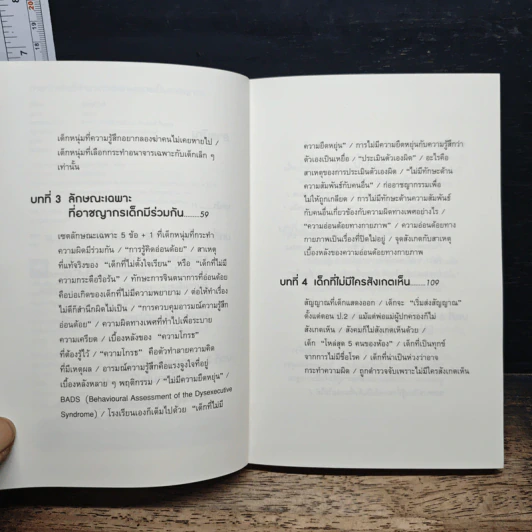 20
เด็กหนุ่มที่ความรู้สึกอยากลองฆ่าคนไม่เคยหายไป /
เด็กหนุ่มที่เลือกกระทำอนาจารเฉพาะกับเด็กเล็ก ๆ
เท่านั้น
บทที่ 3 ลักษณะเฉพาะ
ที่อาชญากรเด็กมีร่วมกัน........59
เซตลักษณะเฉพาะ 5 ข้อ + 1 ที่เด็กหนุ่มที่กระทำ
ความผิดมีร่วมกัน / “การรู้คิดอ่อนด้อย” / สาเหตุ
ที่แท้จริงของ “เด็กที่ไม่ตั้งใจเรียน” หรือ “เด็กที่มี
ความกระตือรือร้น” / ทักษะการจินตนาการที่อ่อนด้อย
คือบ่อเกิดของเด็กที่ไม่มีความพยายาม / ต่อให้ทำเรื่อง
ไม่ดีก็สำนึกผิดไม่เป็น / “การควบคุมอารมณ์ความรู้สึก
อ่อนด้อย” / ความผิดทางเพศที่ทำไปเพื่อระบาย
ความเครียด / เบื้องหลังของ “ความโกรธ”
ที่ต้องรู้ไว้ / “ความโกรธ” คือตัวทำลายความคิด
ที่มีเหตุผล / อารมณ์ความรู้สึกคือแรงจูงใจที่อยู่
เบื้องหลังหลาย ๆ พฤติกรรม / “ไม่มีความยืดหยุ่น” /
BADS (Behavioural Assessment of the Dysexecutive
Syndrome) / โรงเรียนเองก็เต็มไปด้วย “เด็กที่ไม่มี
ความยืดหยุ่น” / การไม่มีความยืดหยุ่นกับความรู้สึกว่า
ตัวเองเป็นเหยื่อ / “ประเมินตัวเองผิด” / อะไรคือ
สาเหตุของการประเมินตัวเองผิด / “ไม่มีทักษะด้าน
ความสัมพันธ์กับคนอื่น” / ก่ออาชญากรรมเพื่อ
ไม่ให้ถูกเกลียด / การไม่มีทักษะด้านความสัมพันธ์
กับคนอื่นเกี่ยวข้องกับความผิดทางเพศอย่างไร /
“ความอ่อนด้อยทางกายภาพ” / ความอ่อนด้อยทาง
กายภาพเป็นเรื่องที่ปิดไม่อยู่ / จุดสังเกตกับสาเหตุ
เบื้องหลังของความอ่อนด้อยทางกายภาพ
บทที่ 4 เด็กที่ไม่มีใครสังเกตเห็น......109
สัญญาณที่เด็กแสดงออก / เด็กจะ “เริ่มส่งสัญญาณ”
ตั้งแต่ตอน ป.2 / แม้แต่พ่อแม่ผู้ปกครองก็ไม่
สังเกตเห็น / สังคมก็ไม่สังเกตเห็นด้วย /
เด็ก “โหล่สุด 5 คนของห้อง” / เด็กที่เป็นทุกข์
จากการไม่มีชื่อโรค / เด็กที่น่าเป็นห่วงว่าอาจ
กระทำความผิด / ถูกตำรวจจับเพราะไม่มีใครสังเกตเห็น